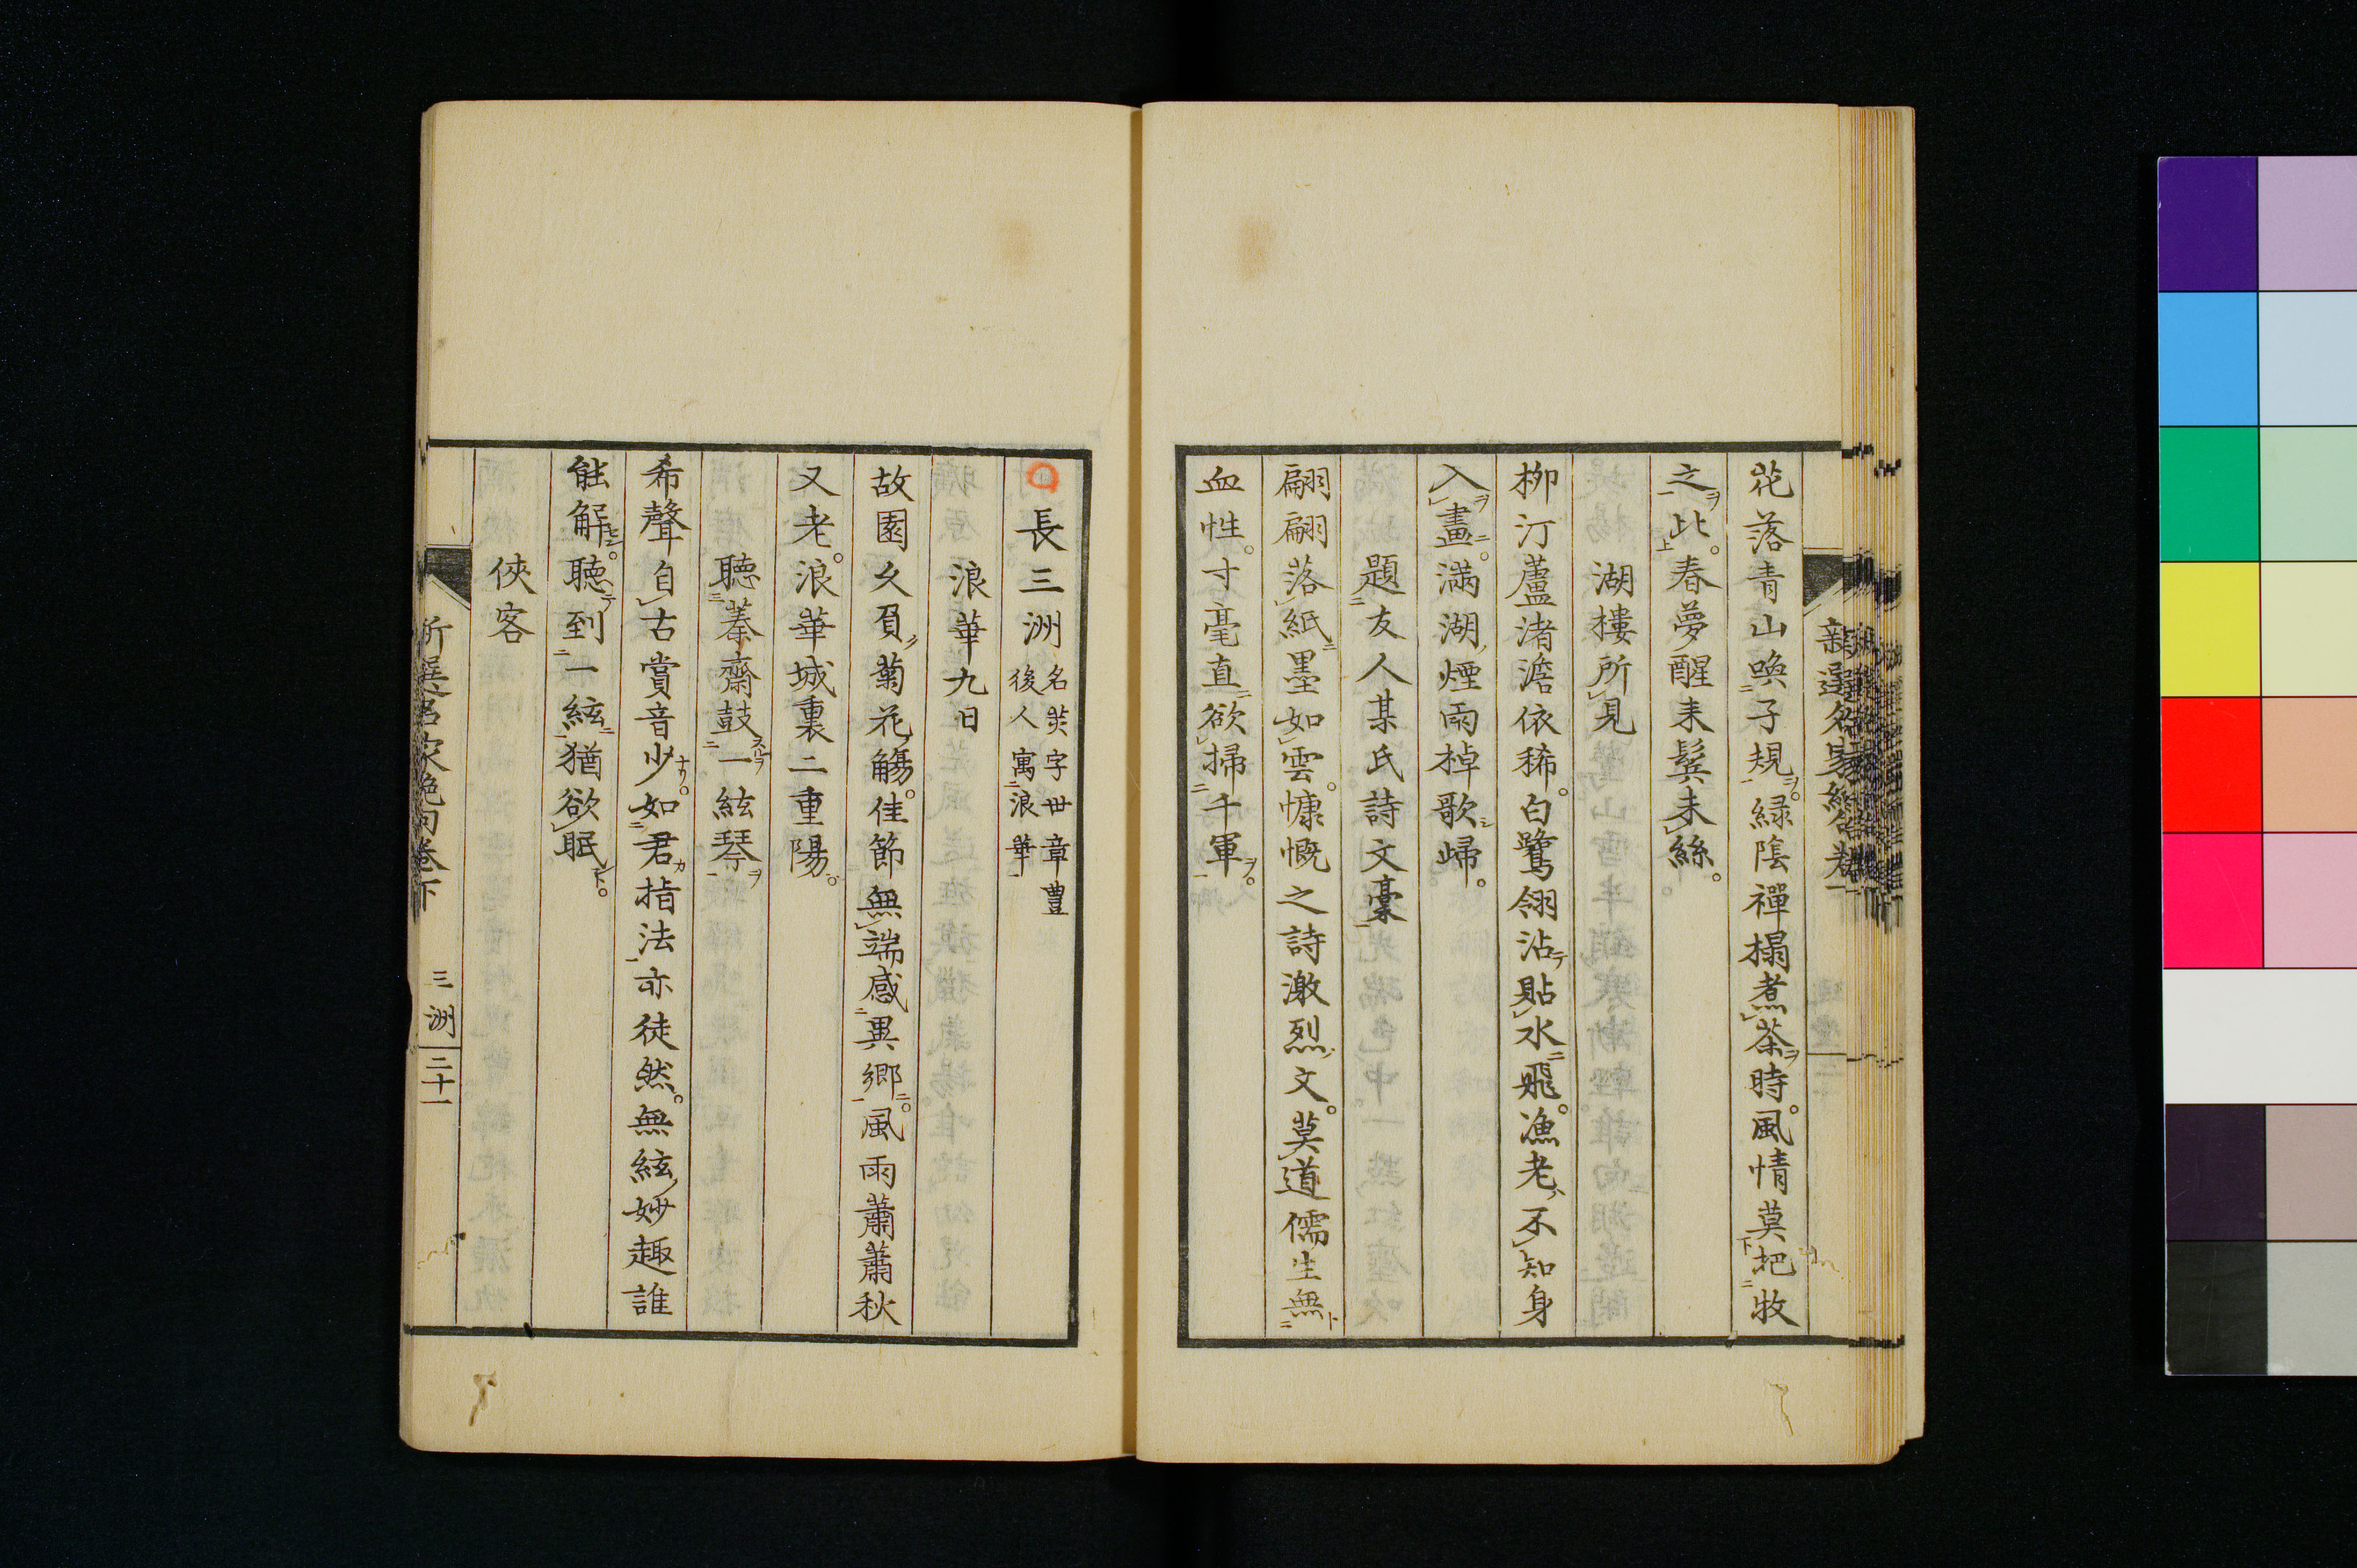 花落青山喚子規緑陰禪榻煮茶時風情莫把牧
之比春夢醒未鬢未絲
湖樓所見
柳汀蘆渚澹依稀白鷺翎沾貼水飛漁老不知身
入畫滿湖煙雨棹歌歸
題友人某氏詩文稾
翩翩落紙墨如雲慷慨之詩激烈文莫道儒生無
血性寸毫直欲掃千軍
長三洲 名炗字世章豊
後人寓浪華
浪華九日
故園久負菊花觴佳節無端感異鄉風雨蕭蕭秋
又老浪華城裏二重陽
聽蓁齋鼓一絃琴
希聲自古賞音少如君指法亦徒然無絃妙趣誰
能解聽到一絃猶欲眠
俠客
新選名家絶句卷下 三洲 二十一